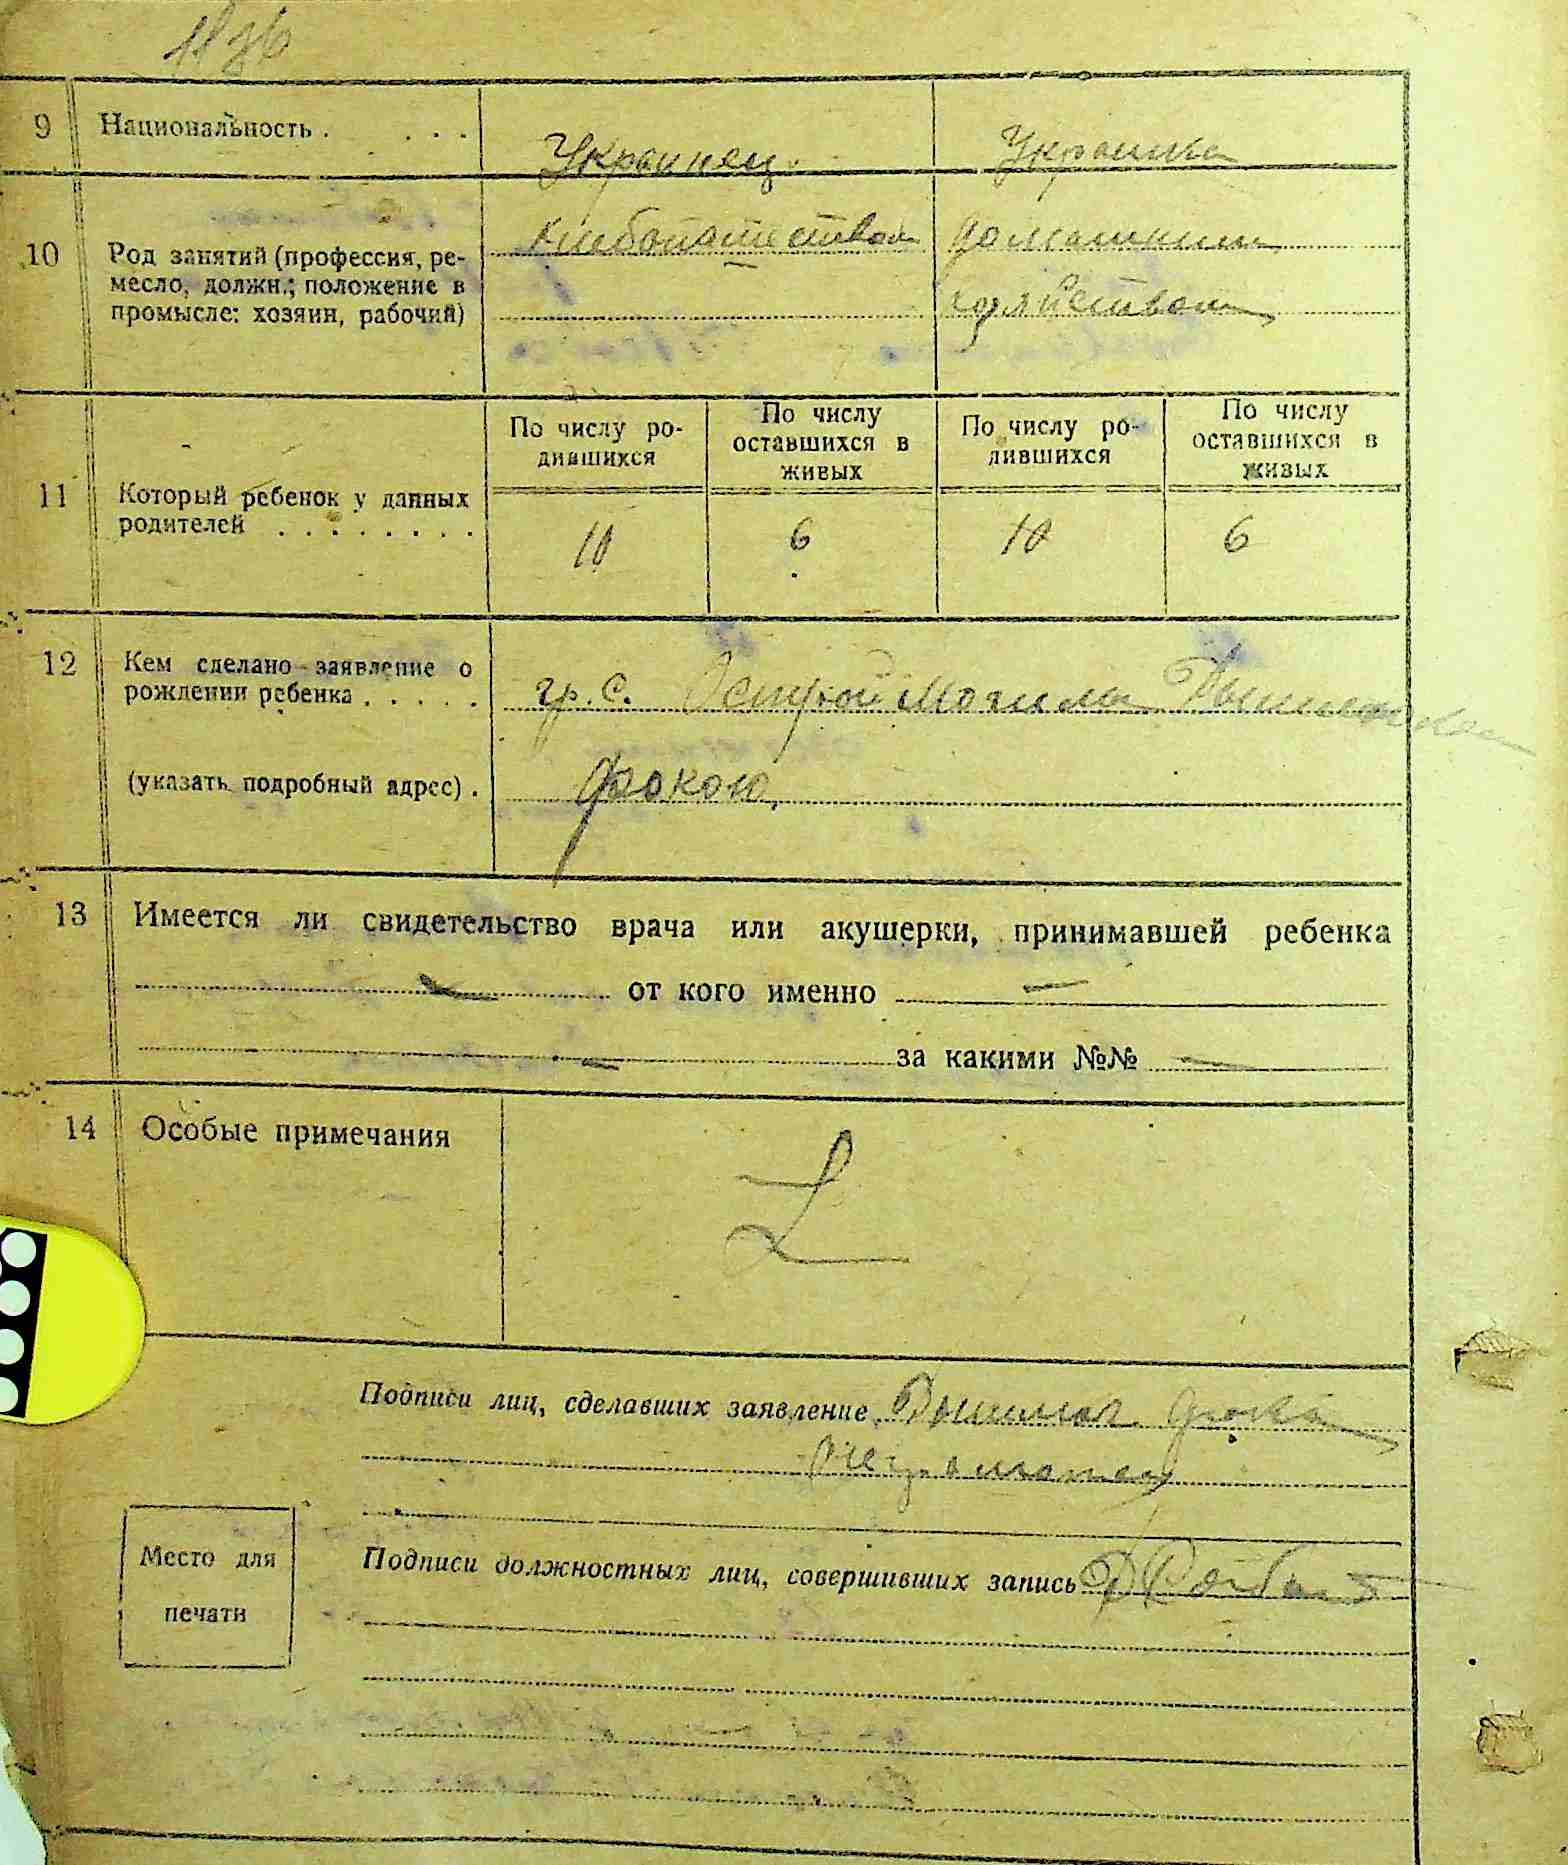 9 Национальность . . . . Украинец. Украинка
10 Род занятий (профессия, ре-
месло, должн.; положение в
промысле: хозяин, рабочий)
хлебопашеством домашним
хозяйством
По числу ро-
дившихся
По числу
оставшихся в
живых
По числу ро-
дившихся
По числу
оставшихся в
живых
11 Который ребенок у данных
родителей . . . . . . . .
10 6 10 6
12 Кем сделано заявление о
рождении ребенка . . . . .
гр. с. Острой Могила
(указать подробный адрес) . Фокою
13 Имеется ли свидетельство врача или акушерки, принимавшей ребенка
— от кого именно —
— за какими №№ —
14 Особые примечания
Подписи лиц, сделавших заявление Фока
Подписи должностных лиц, совершивших запись
Место для
печати